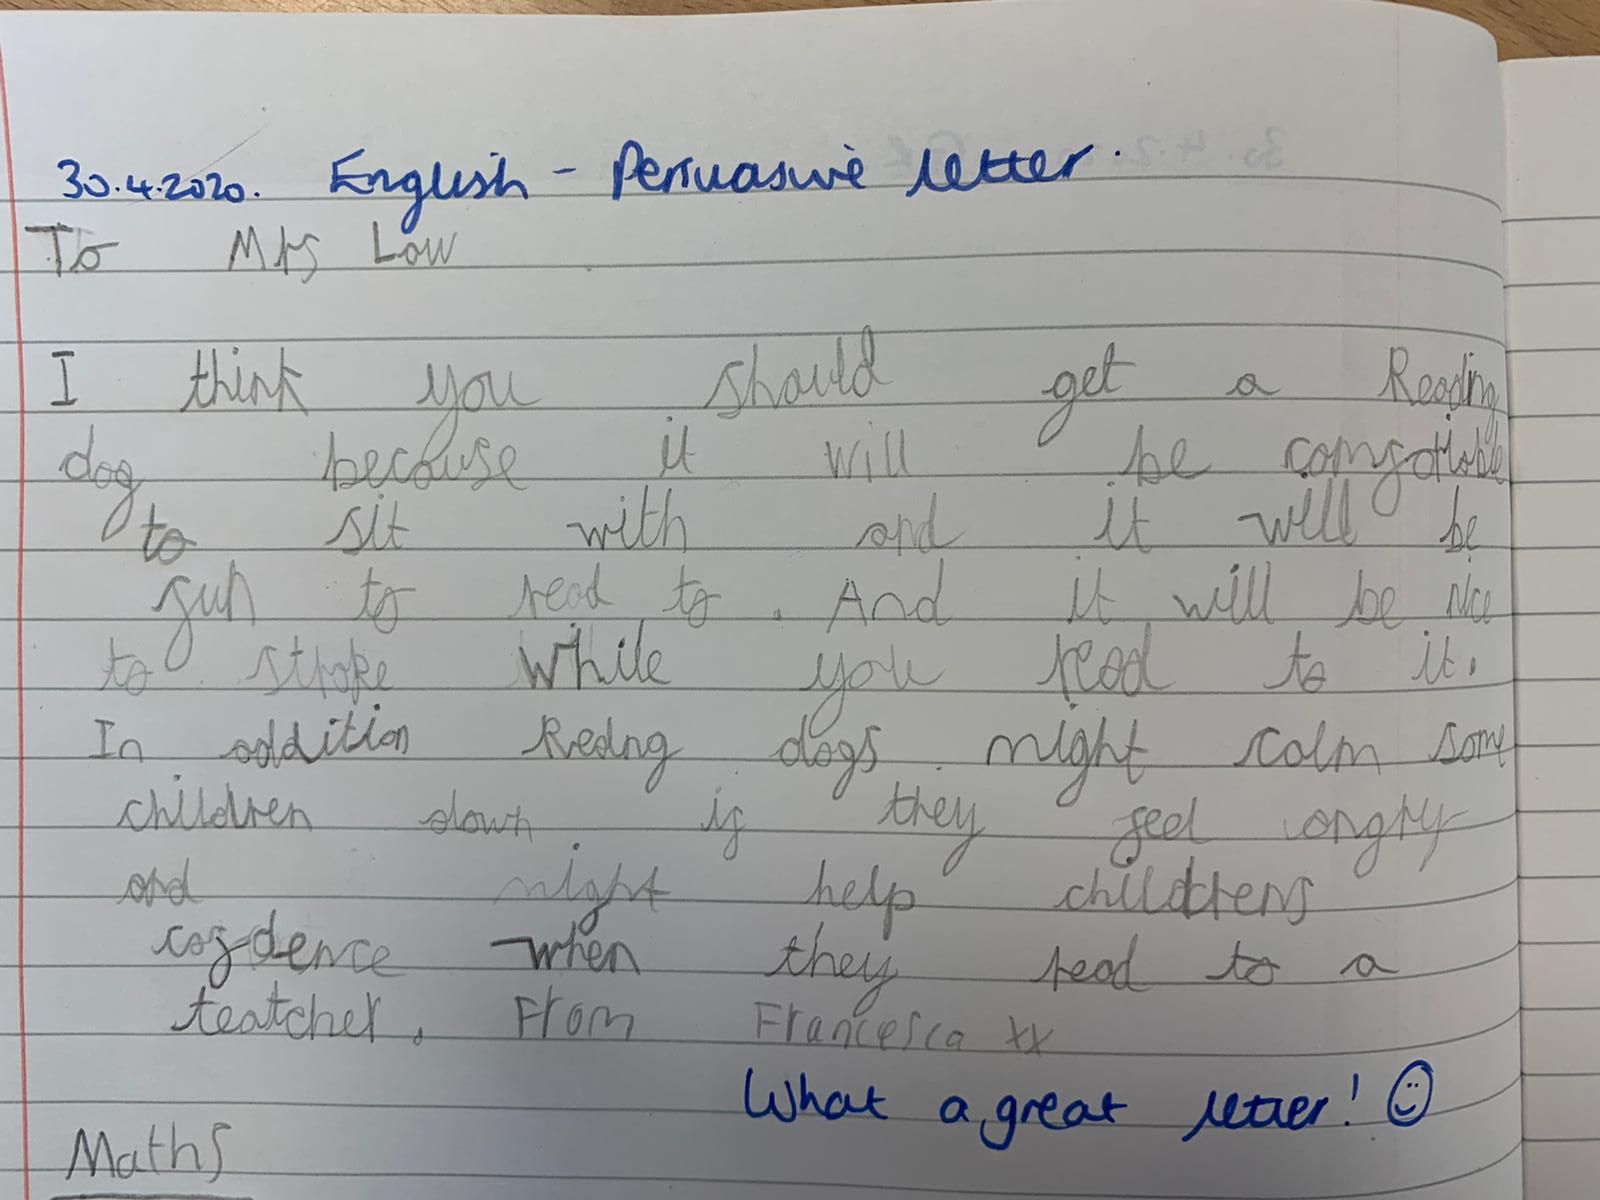 30.4.2020. English - Persuasive letter.
To Mrs Low
I think you should get a Reading
dog because it will be comfortable
to sit with and it will be
fun to read to. And it will be nice
to stroke while you read to it.
In addition Redng dogs might calm some
children down if they feel angry
and might help childrens
cofdence when they read to a
teatcher. From Francesca xx
What a great letter!
Maths